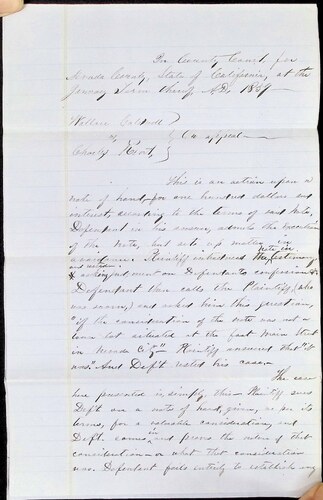 In County Court, for
Nevada County, State of California, at the
January Term thereof A.D. 1869
Wallace Caldwell
vs } On appeal
Charles Kent,
This is an action upon a
note of hand, for one hundred dollars and
interest, according to the terms of said note,
Defendant in his answer, admits the execution
of the note, but sets up matter in
avoidance. Plaintiff introduced Note, in
and
Defendant then calls the Plaintiff, (who
was sworn,) and asked him this question,
"if the consideration of the note was not a
town lot situated at the foot Main Street
in Nevada City" Plaintiff answered that "it
was." And Deft. rested his case.
The case
here presented is simply, this— Plaintiff sues
Deft. on a note of hand, given, as per its
terms, for a valuable consideration, and
Deft. comes in and proves the nature of that
consideration— or what that consideration
was. Defendant fails entirely to establish any